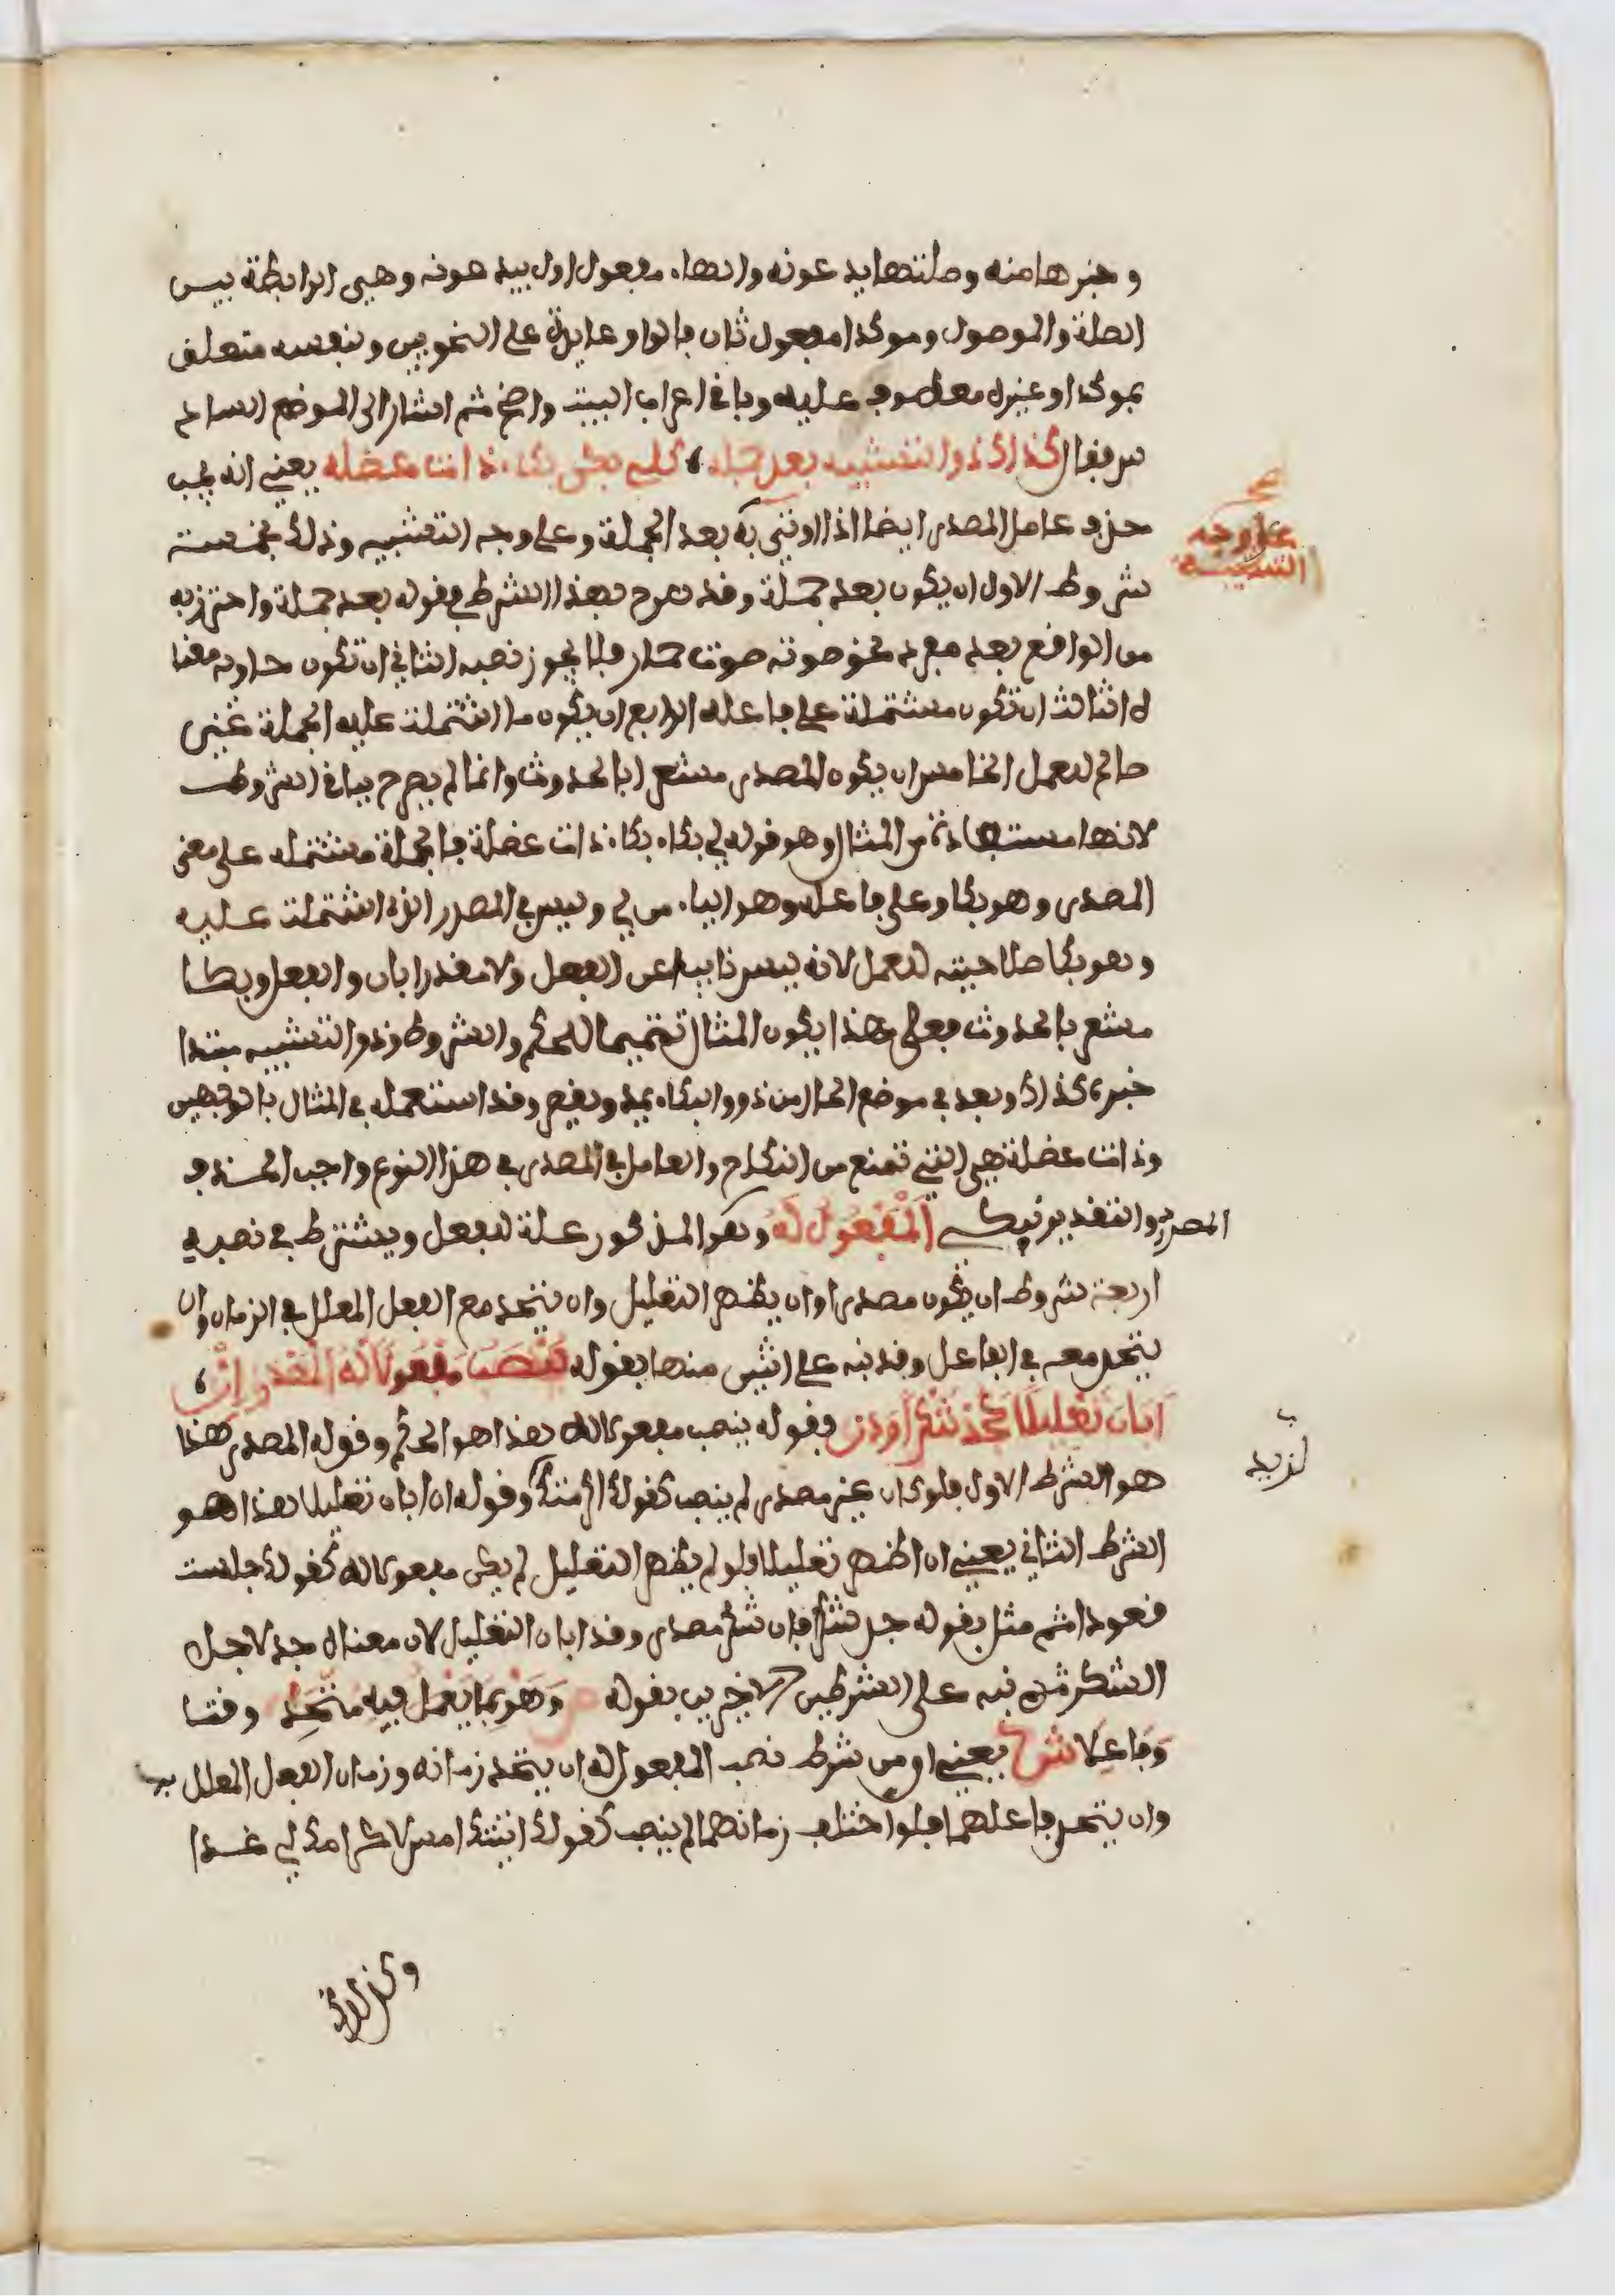 وخبرها منه وصلتها يدعونه والهاء مفعول اول بيدعونه وهي الرابطة بين
الصلة والموصول وموكدا مفعول ثان فالواو عايدة على النحويين ولنفسه متعلق
بموكدا وغيره معطوف عليه وباقي اعراب البيت واضح ثم اشار الى الموضع السادس
فقال كذاك ذو التشبيه بعد جمله كلي بكى بكاء ذات عضله يعني انه يجب
حذف عامل المصدر ايضا اذا اوتي به بعد الجملة وعلى وجه التشبيه وذلك بخمسة
على وجه التشبيه
شروط الاول ان يكون بعد جملة وقد صرح بهذا الشرط في قوله بعد جملة واحترز به
من الواقع بعد مفرد نحو صوته صوت حمار فلا يجوز نصبه الثاني ان تكون حاوية معنا
ه الثالث ان تكون مشتملة على فاعله الرابع ان يكون ما اشتملت عليه الجملة غير
صالح للعمل الخامس ان يكون المصدر مشعرا بالحدوث وانما لم يصرح بباقي الشروط
لانها مستفادة من المثال وهو قوله لي بكاء بكاء ذات عضلة فالجملة مشتمله على معنى
المصدر وهو بكا وعلى فاعله وهو الياء من لي وليس في المصدر الذي اشتملت عليه
وهو بكا صلاحيته للعمل لانه ليس نايبا عن الفعل ولا مقدرا بان والفعل وبكا
مشعر بالحدوث فعلى هذا يكون المثال تتميما للحكم والشروط وذو التشبيه مبتدا
خبره كذاك وبعد في موضع الحال من ذو والبكاء يمد ويقصر وقد استعمله في المثال بالوجهين
وذات عضلة هي التي تمنع من النكاح والعامل في المصدر في هذا النوع واجب الحذف
والتقدير يبكي المفعول له وهو المذكور علة للفعل ويشترط في نصبه
اربعة شروط ان يكون مصدرا وان يظهر التعليل وان يتحد مع الفعل المعلل في الزمان وان
يتحد معه في الفاعل وقد نبه على اثنين منها بقوله ينصب مفعولا له المصدر ان
ابان تعليلا كجد شكرا ودن فقوله ينصب مفعولا له هذا هو الحكم وقوله المصدر هذا
لزيد
هو الشرط الاول فلو كان غير مصدر لم ينصب كقولك اكرمتك وقوله ان ابان تعليلا هذا هو
الشرط الثاني يعني ان اظهر تعليلا فلو لم يظهر التعليل لم يكن مفعولا له كقولك جلست
قعودا ثم مثل بقوله جد شكرا فان شكرا مصدر وقد ابان التعليل لان معناه جد لاجل
الشكر ثم نبه على الشرطين الاخيرين بقوله وهو بما يعمل فيه متحد وقتا
وفاعلا يعني ان من شرط نصب المفعول له ان يتحد زمانه وزمان الفعل المعلل به
وان يتحد فاعلهما فلو اختلف زمانهما لم ينصب كقولك اتيتك امس لاكرامك لي غدا
وكذلك